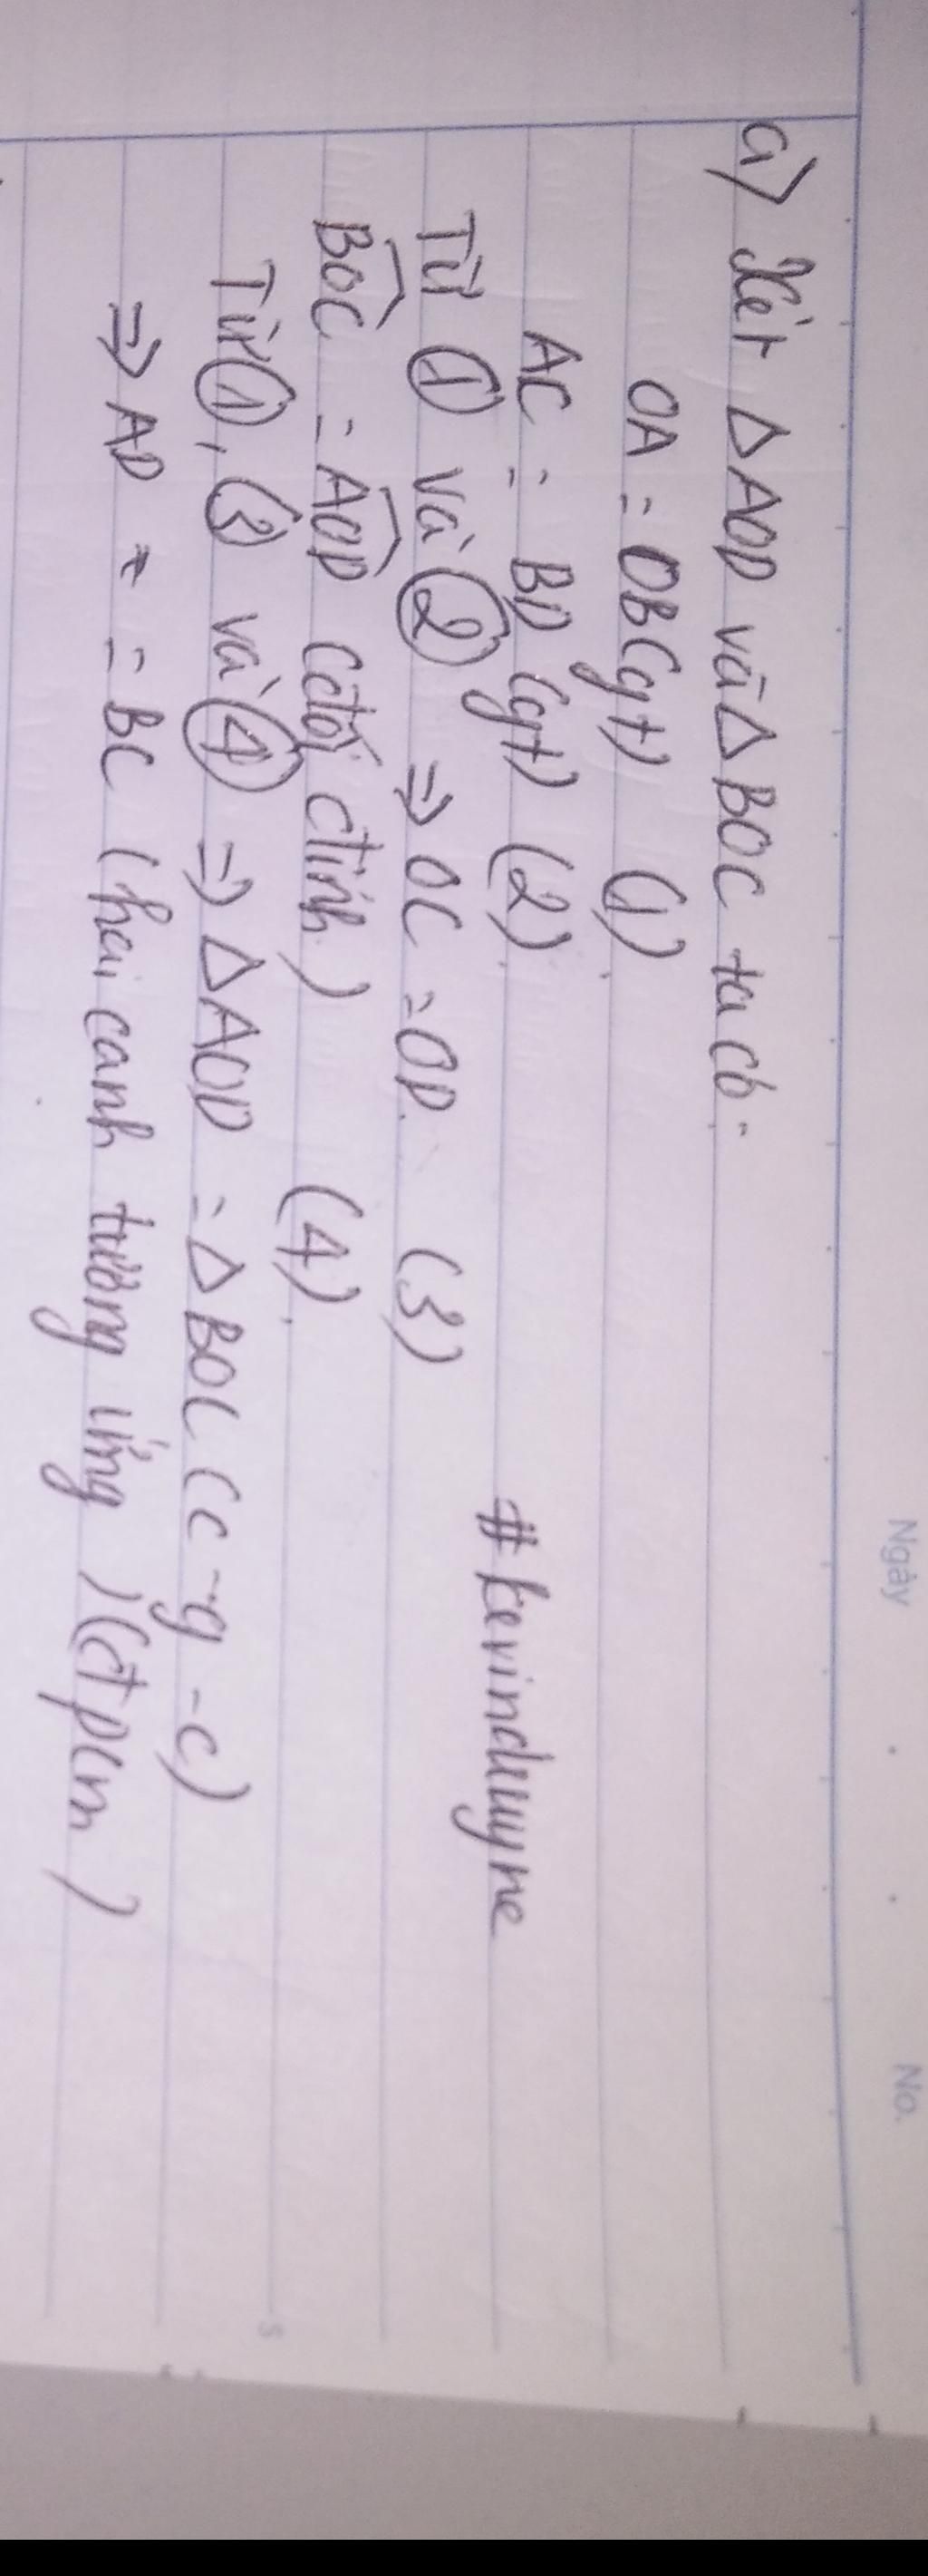 Ngày
No.
a) Xét △AOD và △BOC ta có:
OA = OB (gt) (1).
AC = BD (gt) (2).
#kevinduyne
Từ ① và ② => OC = OD. (3)
BOC = AOD (đối đỉnh) (4).
Từ ①, ③ và ④ => △AOD = △BOC (c-g-c)
=> AD = BC (hai cạnh tương ứng) (đpcm)